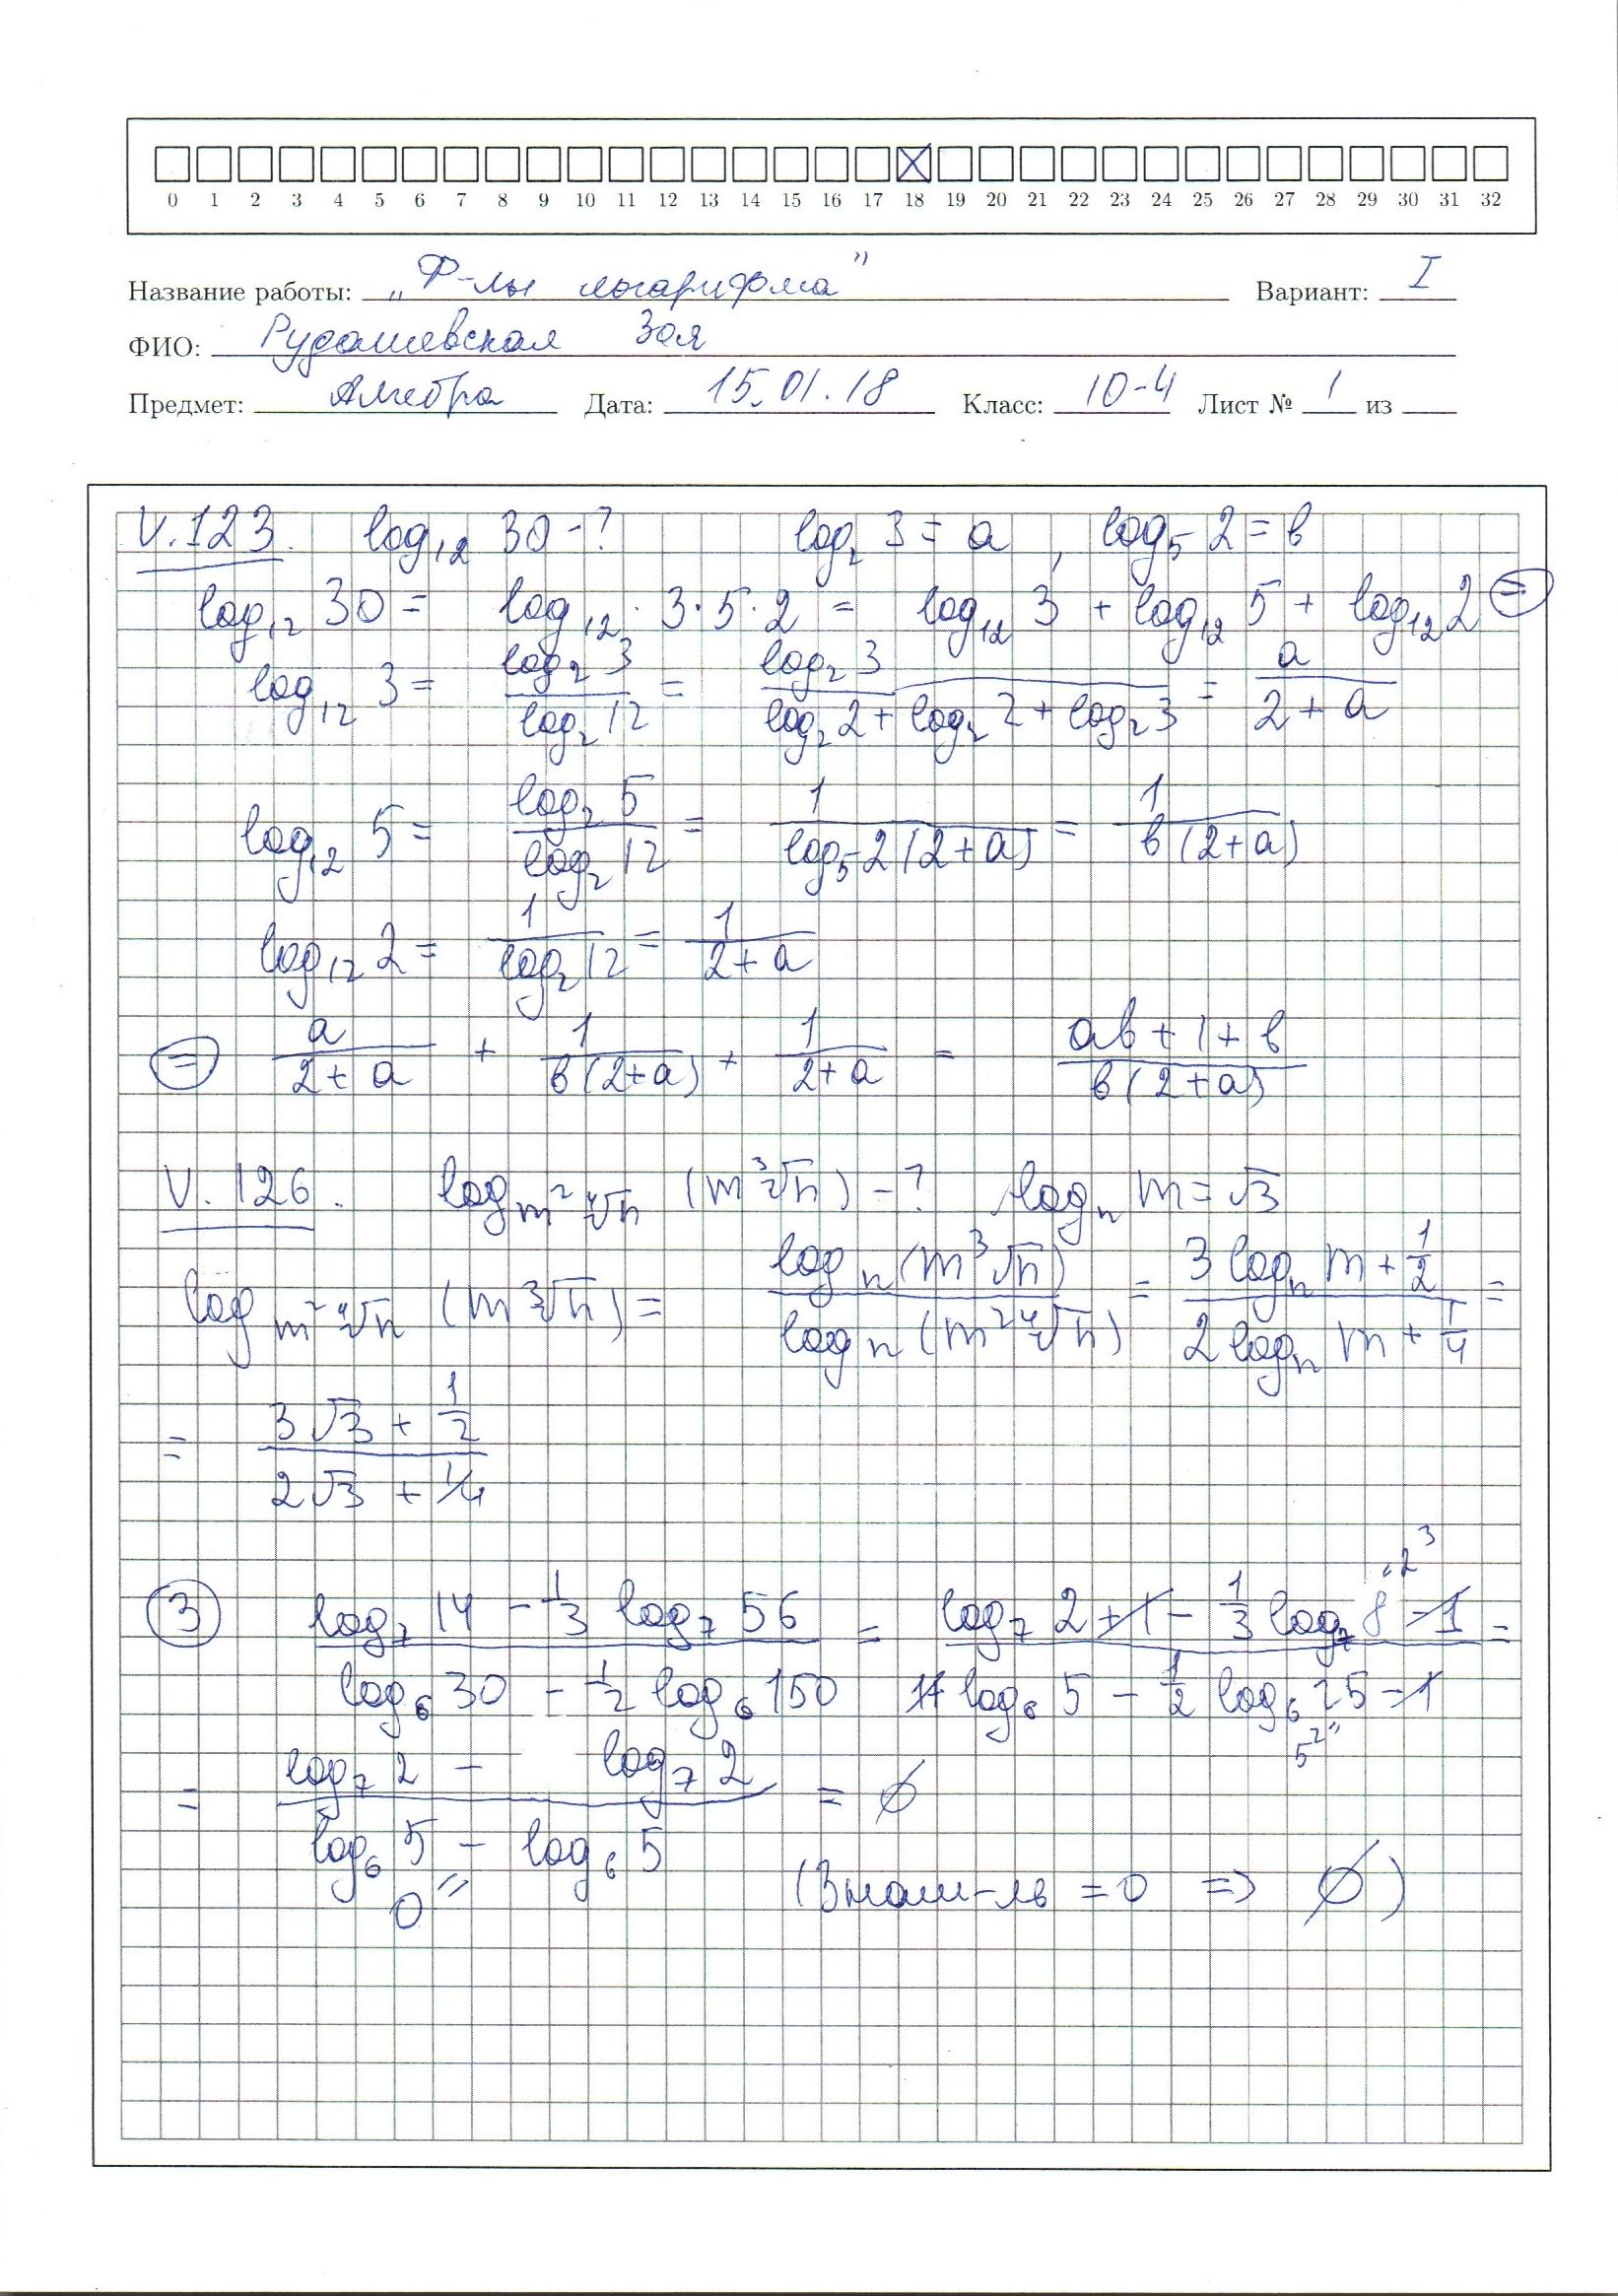 0 1 2 3 4 5 6 7 8 9 10 11 12 13 14 15 16 17 18 19 20 21 22 23 24 25 26 27 28 29 30 31 32
Название работы: „Ф-лы логарифма” Вариант: I
ФИО: Рудашевская Зоя
Предмет: Алгебра Дата: 15.01.18 Класс: 10-4 Лист № 1 из
V.123. log₁₂ 30 - ? log₂ 3 = a , log₅ 2 = b
log₁₂ 30 = log₁₂ · 3·5·2 = log₁₂ 3 + log₁₂ 5 + log₁₂ 2 (=)
log₁₂ 3 = log₂ 3 / log₂ 12 = log₂ 3 / (log₂ 2 + log₂ 2 + log₂ 3) = a / (2 + a)
log₁₂ 5 = log₂ 5 / log₂ 12 = 1 / (log₅ 2 (2+a)) = 1 / (b(2+a))
log₁₂ 2 = 1 / log₂ 12 = 1 / (2+a)
(=) a / (2+a) + 1 / (b(2+a)) + 1 / (2+a) = (ab + 1 + b) / (b(2+a))
V.126. log_{m² ⁴√n} (m ³√n) - ? logₙ m = √3
log_{m² ⁴√n} (m ³√n) = logₙ (m³ √n) / logₙ (m² ⁴√n) = (3 logₙ m + 1/2) / (2 logₙ m + 1/4) =
= (3√3 + 1/2) / (2√3 + 1/4)
(3) (log₇ 14 - 1/3 log₇ 56) / (log₆ 30 - 1/2 log₆ 150) = (log₇ 2 + 1 - 1/3 log₇ 8 - 1) / (1 + log₆ 5 - 1/2 log₆ 25 - 1) =
" 2³
5² "
= (log₇ 2 - log₇ 2) / (log₆ 5 - log₆ 5) = ∅
0 " (Знам-ль = 0 => ∅)